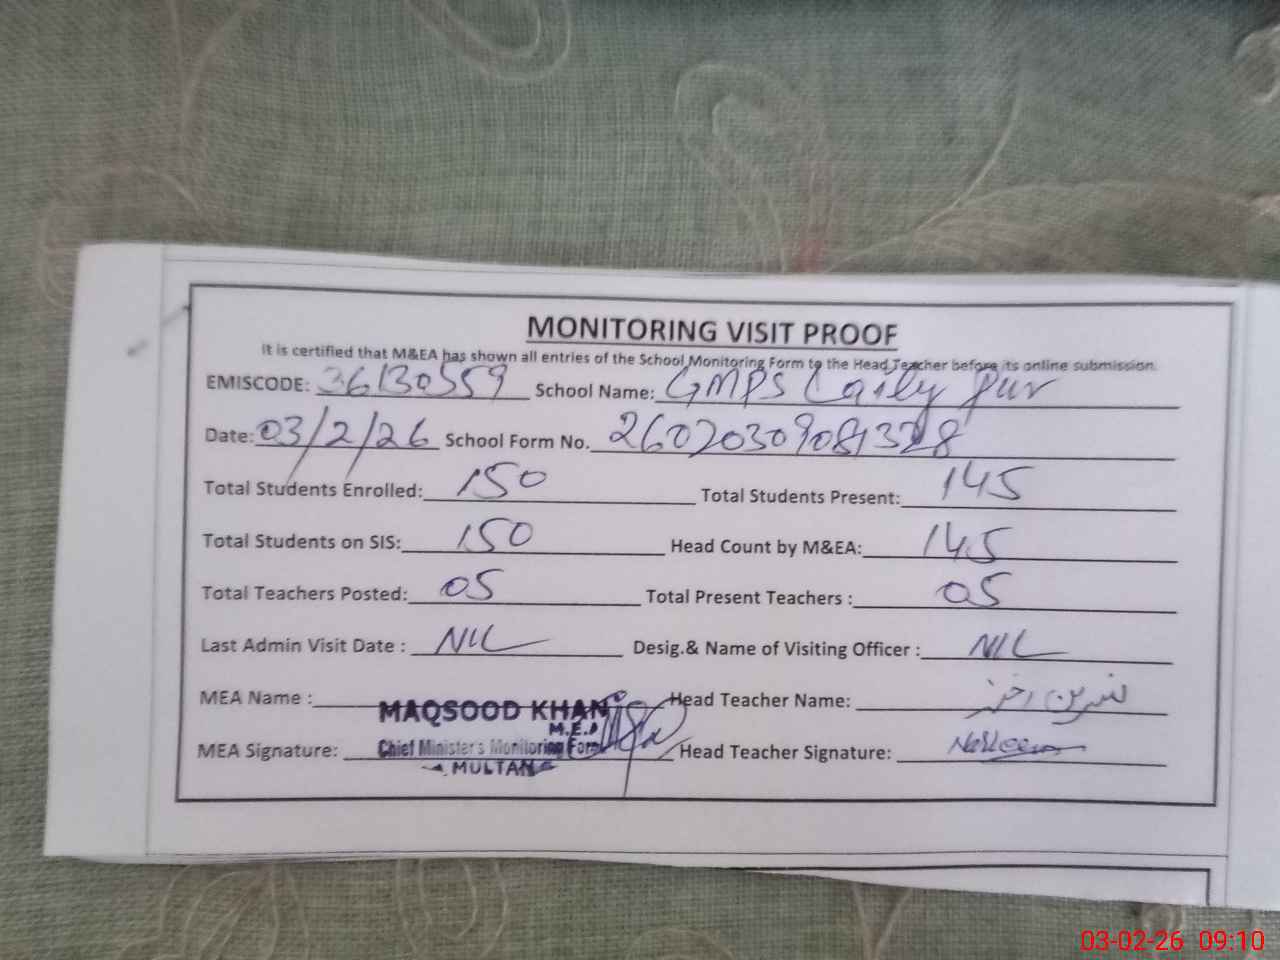 MONITORING VISIT PROOF
It is certified that M&EA has shown all entries of the School Monitoring Form to the Head Teacher before its online submission.
EMISCODE: 36130559 School Name: GMPS Laily pur
Date: 03/2/26 School Form No. 26020309081328
Total Students Enrolled: 150 Total Students Present: 145
Total Students on SIS: 150 Head Count by M&EA: 145
Total Teachers Posted: 05 Total Present Teachers : 05
Last Admin Visit Date : NIL Desig.& Name of Visiting Officer : NIL
MEA Name : MAQSOOD KHAN Head Teacher Name: نسرین اختر
M.E.A
MEA Signature: Chief Minister's Monitoring Force Head Teacher Signature: Nasreen
MULTAN
03-02-26 09:10